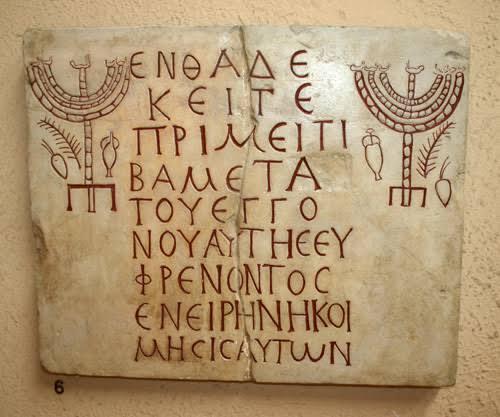 ΕΝΘΑΔΕ
ΚΕΙΤΕ
ΠΡΙΜΕΙΤΙ
ΒΑΜΕΤΑ
ΤΟΥΕΓΓΟ
ΝΟΥΑΥΤΗΕΕΥ
ΦΡΕΝΟΝΤΟϹ
ΕΝΕΙΡΗΝΗΚΟΙ
ΜΗϹΙϹΑΥΤΩΝ
6